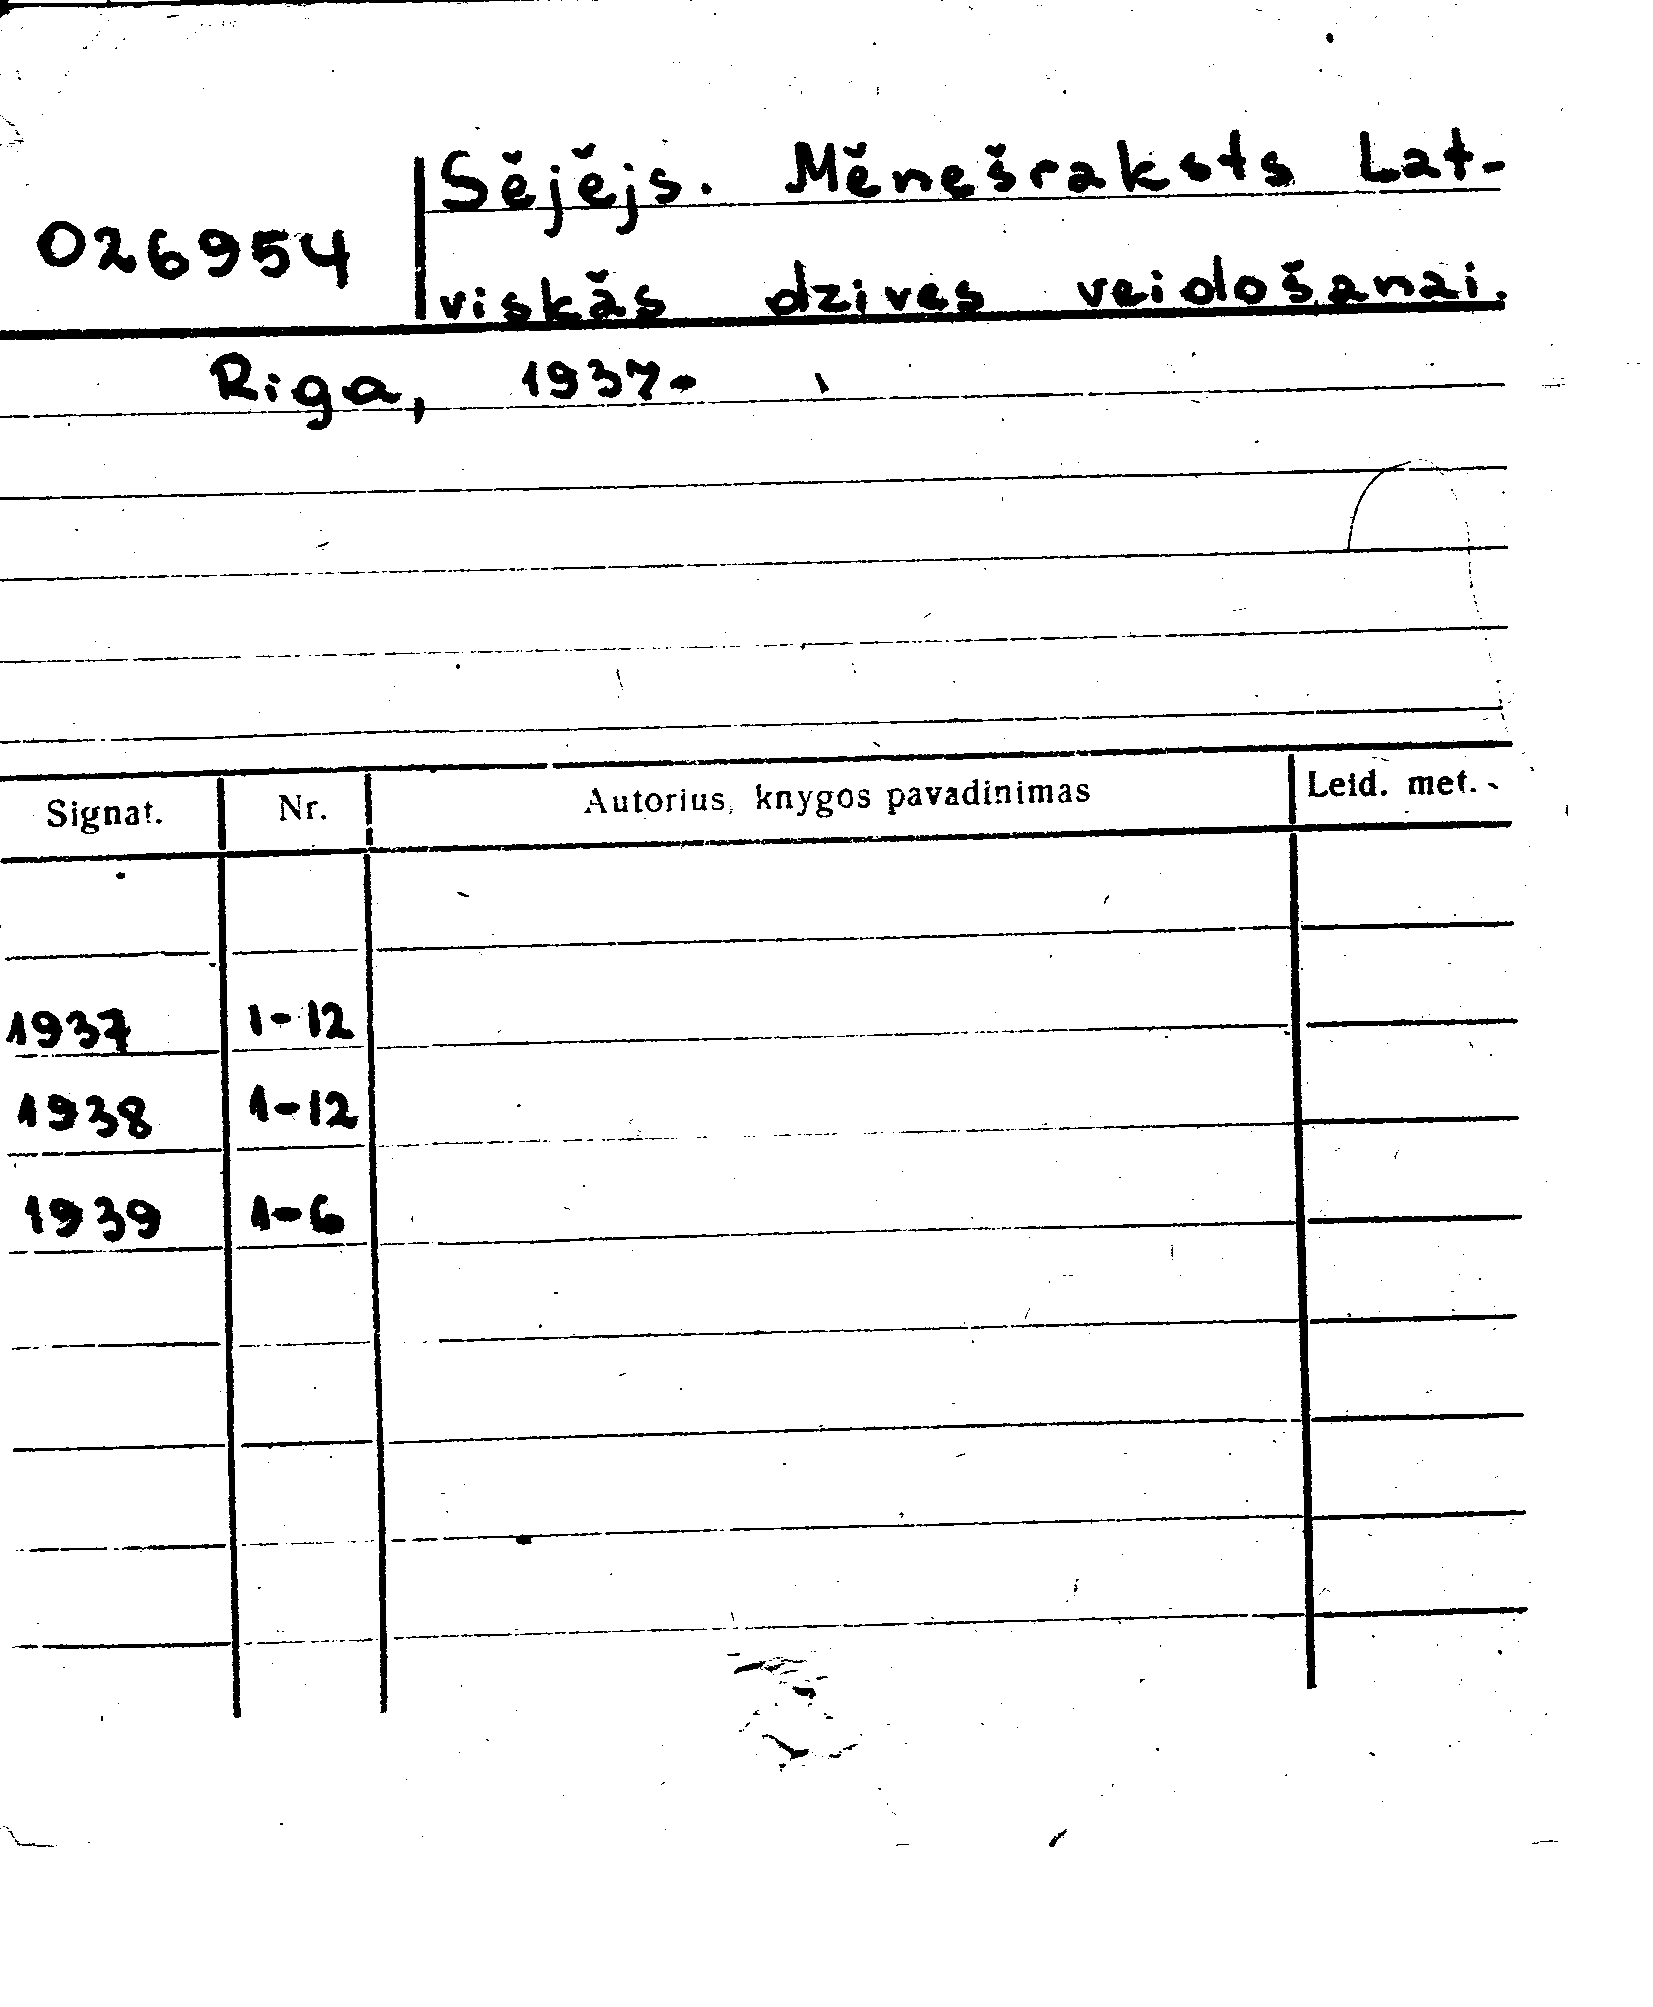 Sějějs. Měnešraksts Lat-
026954
viskăs dzives veidošanai.
Riga, 1937-
Signat. Nr. Autorius, knygos pavadinimas Leid. met.
1937 1-12
1938 1-12
1939 1-6